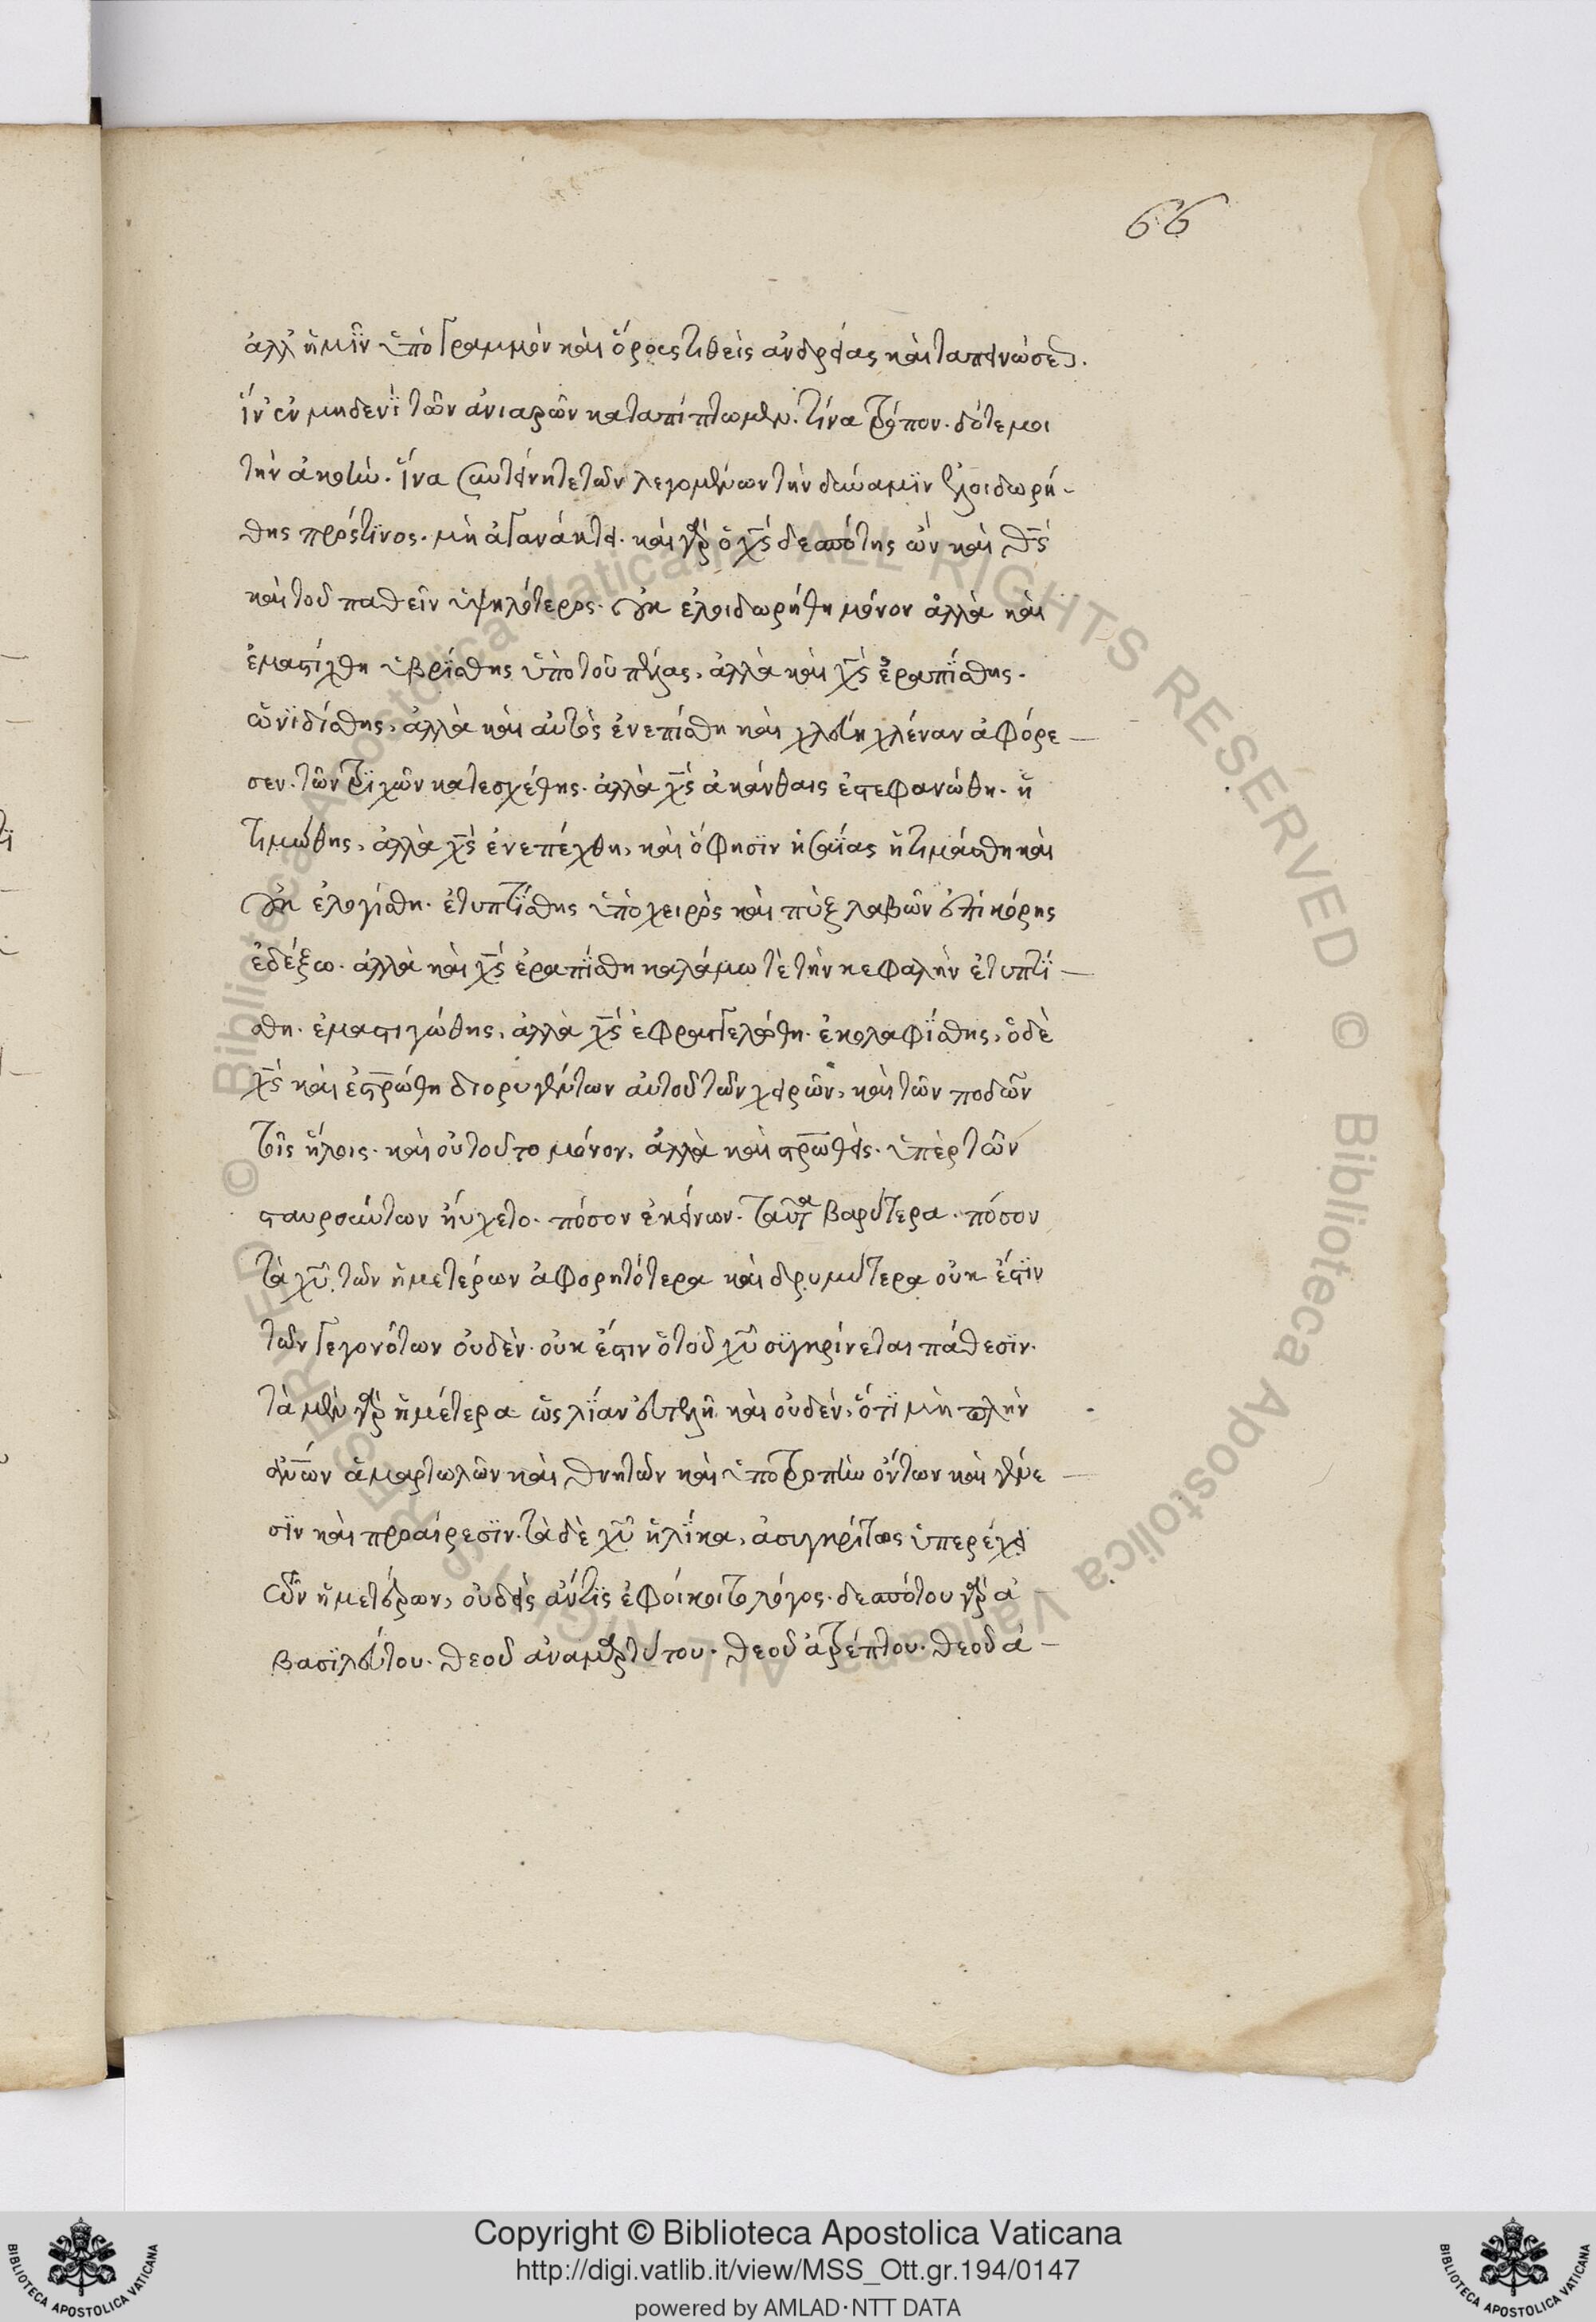 66
ἀλλ' ἡμῖν ὑπογραμμὸν καὶ ὅρους τιθεὶς ἀνδρείας καὶ ταπεινώσεως.
ἵν' ἐν μηδενὶ τῶν ἀνιαρῶν καταπίπτωμεν. τίνα τρόπον. δότε μοι
τὴν ἀκοὴν. ἵνα συντείνητε τῶν λεγομένων τὴν δύναμιν ἐλοιδωρή-
θης πρός τινος. μὴ ἀγανάκτει. καὶ γὰρ ὁ χς δεσπότης ὢν καὶ θς
καὶ τοῦ παθεῖν ὑψηλότερος. οὐκ ἐλοιδωρήθη μόνον ἀλλὰ καὶ
ἐμαστίχθη ὑβρίσθης ὑπὸ τοῦ πέλας, ἀλλὰ καὶ χς ἐραπίσθης.
ὠνιδίσθης, ἀλλὰ καὶ αὐτὸς ἐνεπίσθη καὶ χλεύη χλέναν ἀφόρε-
σεν. τῶν τριχῶν κατεσχέθης. ἀλλὰ χς ἀκάνθαις ἐστεφανώθη. ἠ
τιμώθης, ἀλλὰ χς ἐνεπέχθη, καὶ ὅ φησιν ἡσαΐας ἠτιμάσθη καὶ
οὐκ ἐλογίσθη. ἐτυπτίσθης ὑπὸ χειρὸς καὶ πὺξ λαβῶν ἐπὶ κόρης
ἐδέξω. ἀλλὰ καὶ χς ἐραπίσθη καλάμω τὲ τὴν κεφαλὴν ἐτυπτί-
σθη. ἐμαστιγώθης, ἀλλὰ χς ἐφραγγελώθη. ἐκολαφίσθης, ὁ δὲ
χς καὶ ἐστρώθη διορυγέντων αὐτοῦ τῶν χειρῶν, καὶ τῶν ποδῶν
τοῖς ἥλοις. καὶ οὐ τοῦτο μόνον, ἀλλὰ καὶ στρωθεὶς. ὑπὲρ τῶν
σταυρσάντων ηὔχετο. πόσον ἐκείνων. ταῦτα βαρύτερα. πόσον
τὰ χυ τῶν ἡμετέρων ἀφορητότερα καὶ δρυμύτερα οὐκ ἔστιν
τῶν γεγονότων οὐδὲν. οὐκ ἔστιν ὃ τοῦ χυ σιγκρίνεται πάθεσιν.
τὰ μὲν γὰρ ἡμέτερα ὡς λίαν εὐτελῆ καὶ οὐδέν, ὅτι μὴ πλὴν
ανων ἁμαρτωλῶν καὶ θνητῶν καὶ ὑπὸ τροπὴν ὄντων καὶ γένε-
σιν καὶ προαίρεσιν. τὰ δὲ χυ ἡλίκα, ἀσιγκρίτως ὑπερέχει
τῶν ἡμετέρων, οὐδεὶς ἄν τις ἐφοίκοιτο λόγος. δεσπότου γὰρ ἀ
βασιλεύτου. θεοῦ ἀναμαρτύτου. θεοῦ ἀτρέπτου. θεοῦ ἀ-
Copyright © Biblioteca Apostolica Vaticana
http://digi.vatlib.it/view/MSS_Ott.gr.194/0147
powered by AMLAD·NTT DATA
BIBLIOTECA APOSTOLICA VATICANA
BIBLIOTECA APOSTOLICA VATICANA